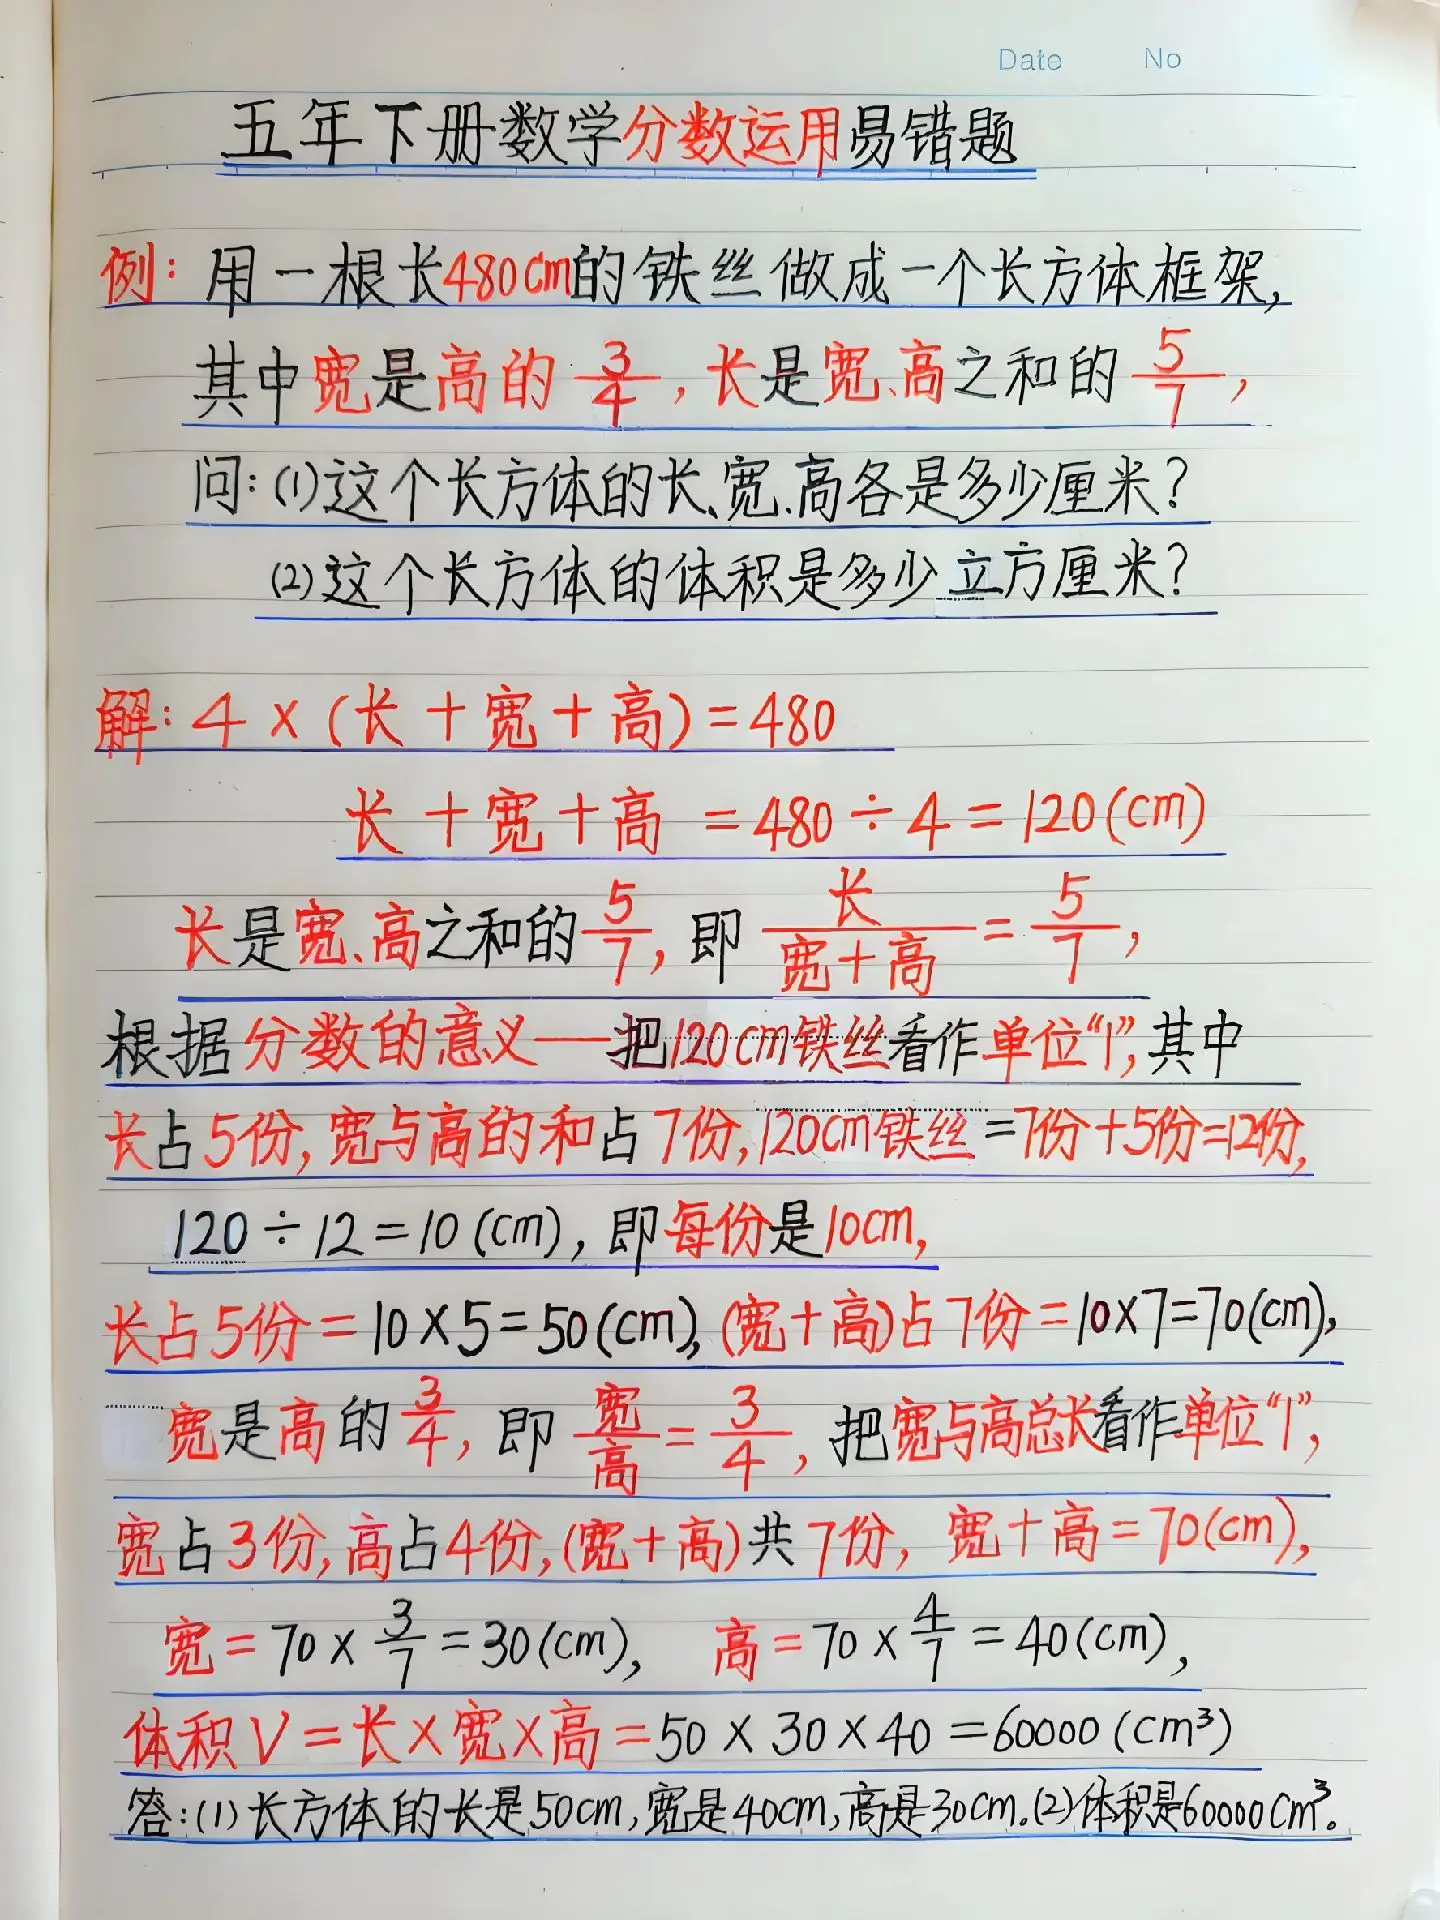 Date No
五年下册数学分数运用易错题
例：用一根长480cm的铁丝做成一个长方体框架，
其中宽是高的3/4，长是宽、高之和的5/7，
问：(1)这个长方体的长、宽、高各是多少厘米？
(2)这个长方体的体积是多少立方厘米？
解：4×(长+宽+高)=480
长+宽+高=480÷4=120(cm)
长是宽、高之和的5/7，即长/(宽+高)=5/7，
根据分数的意义——把120cm铁丝看作单位“1”，其中
长占5份，宽与高的和占7份，120cm铁丝=7份+5份=12份，
120÷12=10(cm)，即每份是10cm，
长占5份=10×5=50(cm)，(宽+高)占7份=10×7=70(cm)，
宽是高的3/4，即宽/高=3/4，把宽与高总长看作单位“1”，
宽占3份，高占4份，(宽+高)共7份，宽+高=70(cm)，
宽=70×3/7=30(cm)，高=70×4/7=40(cm)，
体积V=长×宽×高=50×30×40=60000(cm³)
答：(1)长方体的长是50cm，宽是40cm，高是30cm.(2)体积是60000cm³。